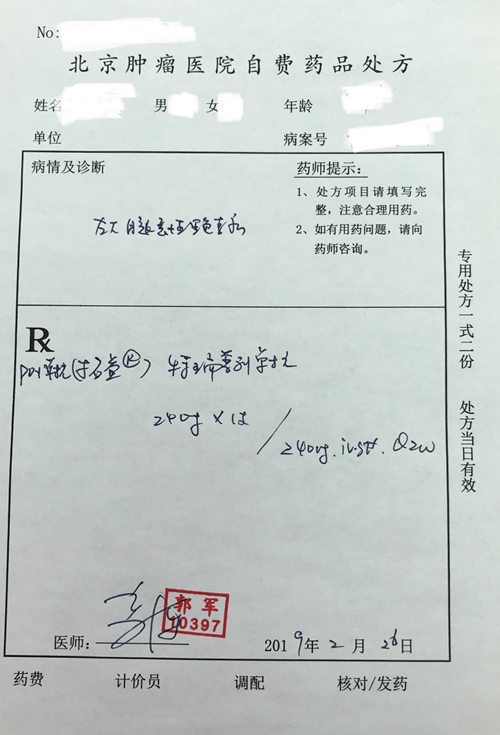 No:
北京肿瘤医院自费药品处方
姓名 男 女 年龄
单位 病案号
病情及诊断
药师提示:
1、处方项目请填写完
整，注意合理用药。
2、如有用药问题，请向
药师咨询。
恶性黑色素
Rx
PD1单抗(拓益®) 特瑞普利单抗
240mg × 1支
/ 240mg. iv.gtt. Q2w
专用处方一式二份 处方当日有效
郭军
10397
医师:
2019年2月26日
药费 计价员 调配 核对/发药